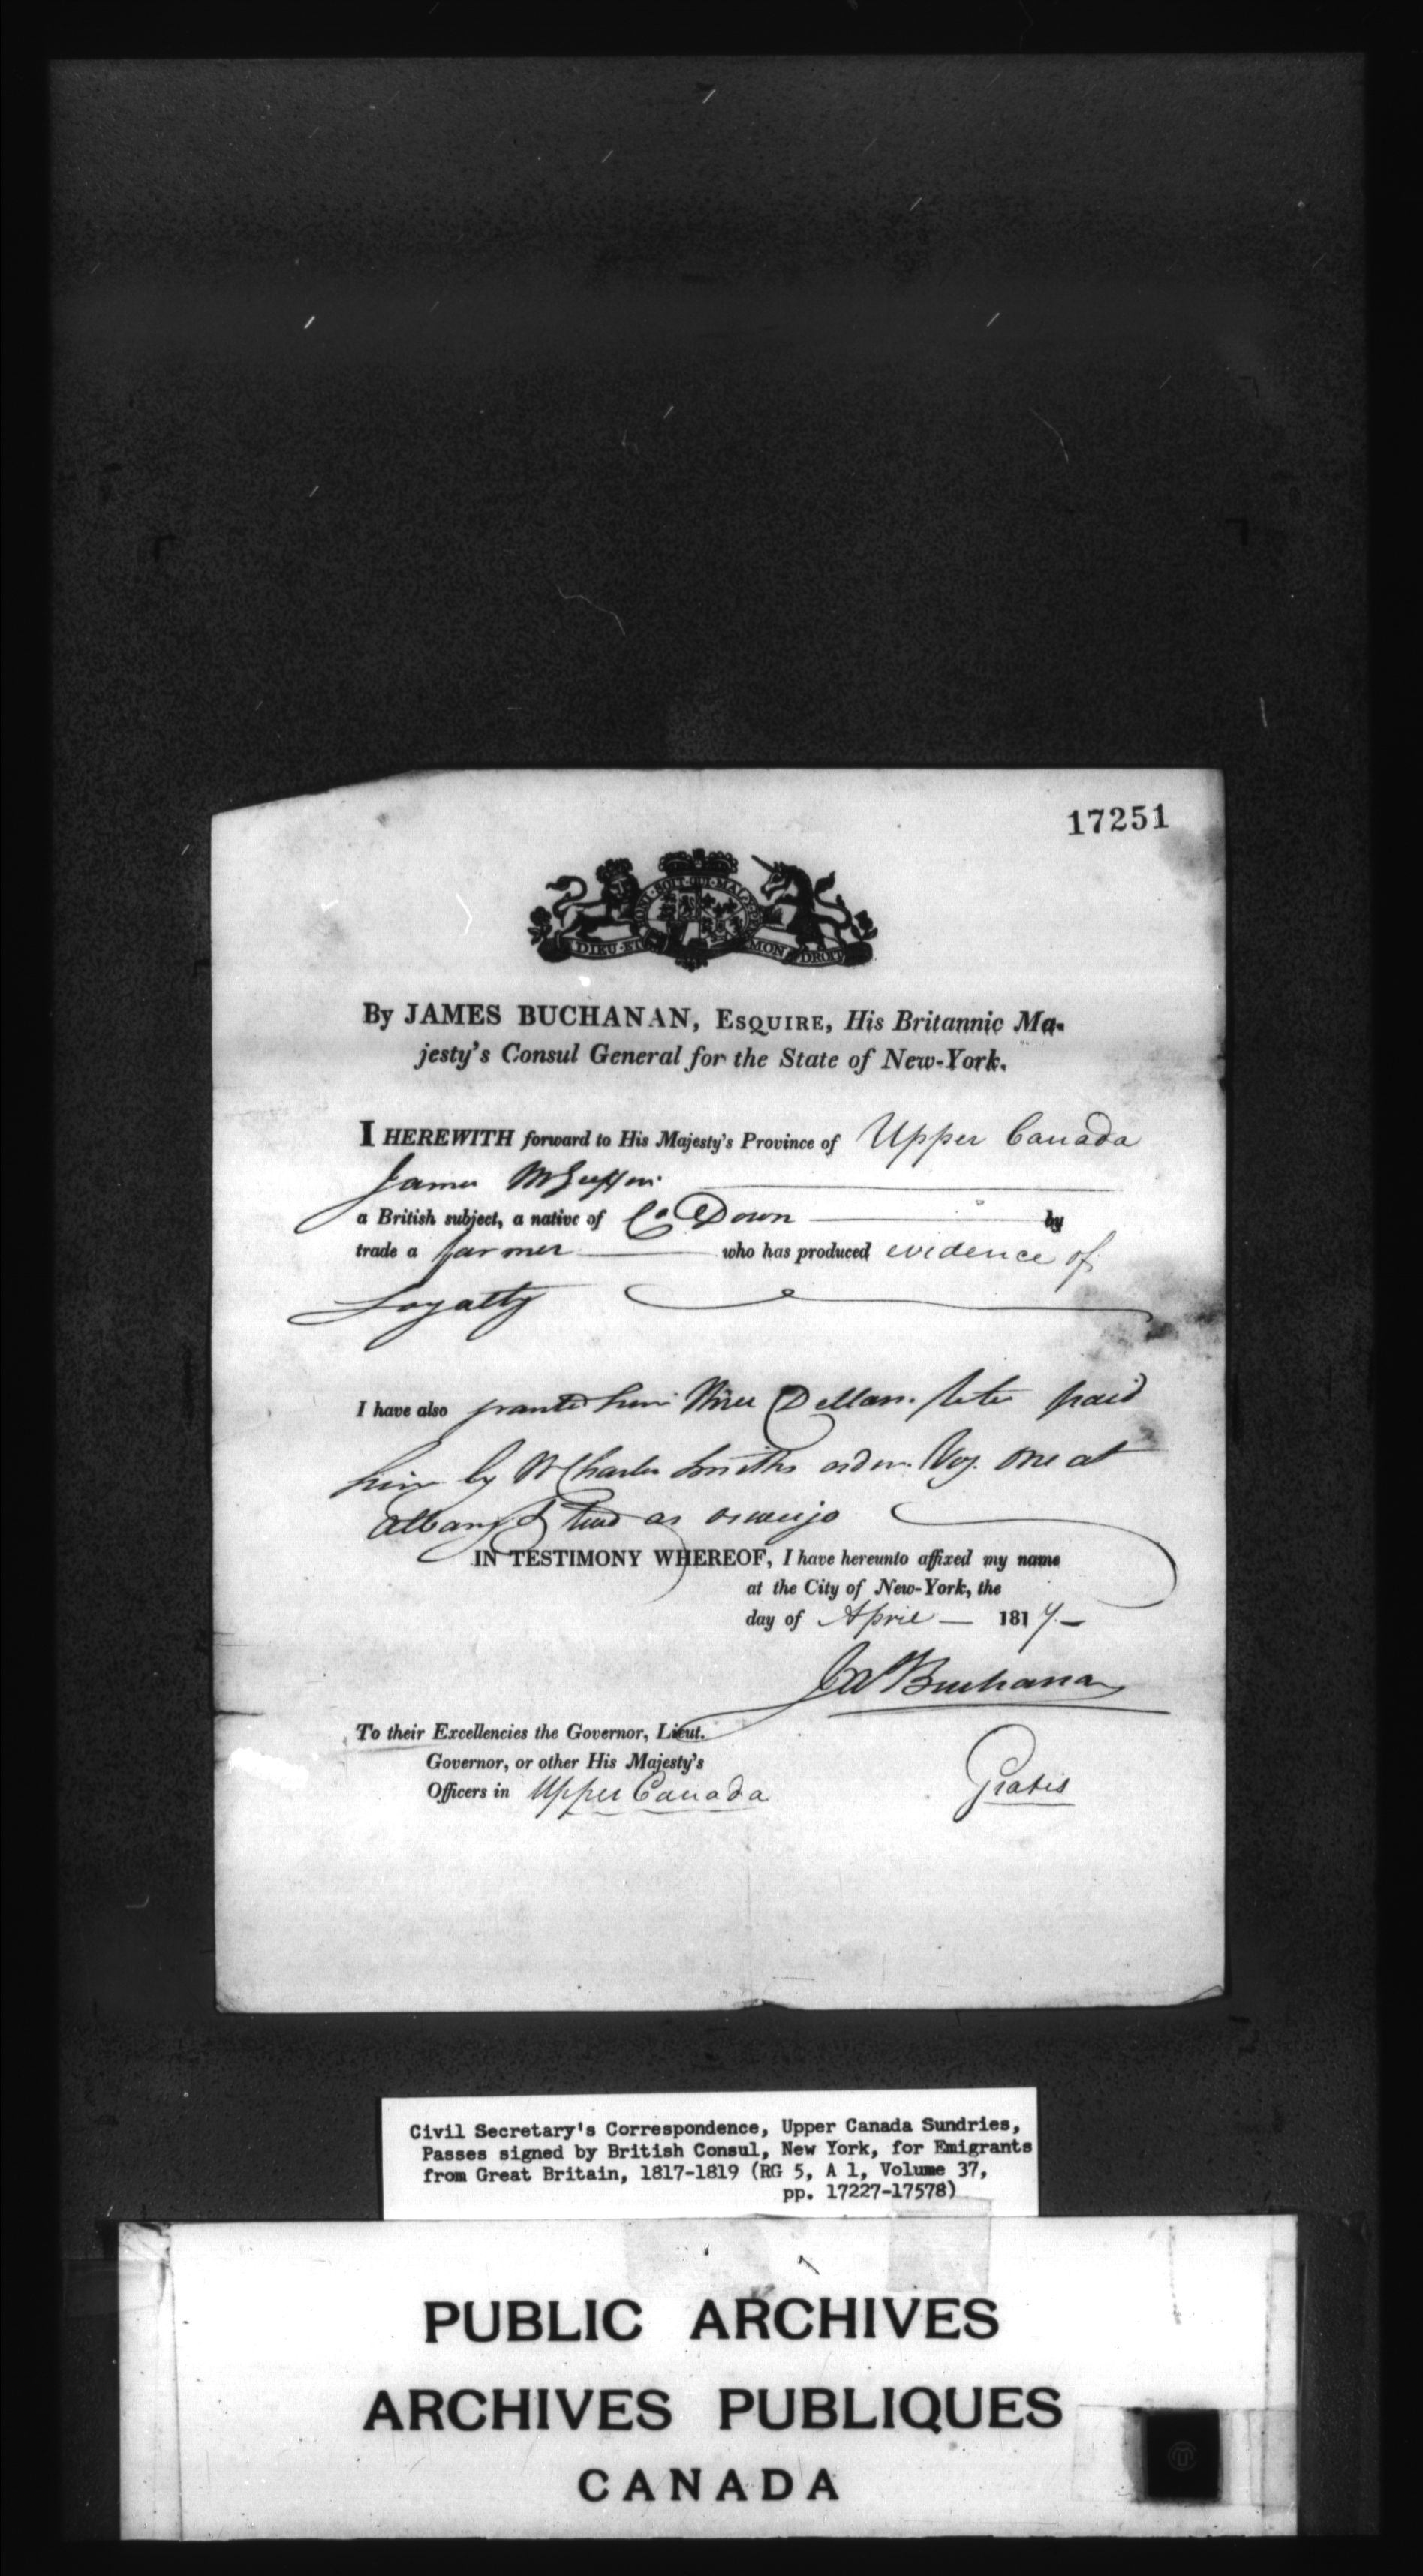 17251
HONI·SOIT·QUI·MAL·Y
DIEU·ET MON DROIT
By JAMES BUCHANAN, ESQUIRE, His Britannic Ma-
jesty's Consul General for the State of New-York.
I HEREWITH forward to His Majesty's Province of Upper Canada
James
a British subject, a native of Co Down by
trade a farmer who has produced evidence of
Loyalty
I have also granted him three Dollars to be paid
him by Mr Charles Smiths order Vizt. One at
Albany & two at oswego
IN TESTIMONY WHEREOF, I have hereunto affixed my name
at the City of New-York, the
day of April 1817
Jas Buchanan
To their Excellencies the Governor, Lieut.
Governor, or other His Majesty's
Officers in Upper Canada
Gratis
Civil Secretary's Correspondence, Upper Canada Sundries,
Passes signed by British Consul, New York, for Emigrants
from Great Britain, 1817-1819 (RG 5, A 1, Volume 37,
pp. 17227-17578)
PUBLIC ARCHIVES
ARCHIVES PUBLIQUES
CANADA